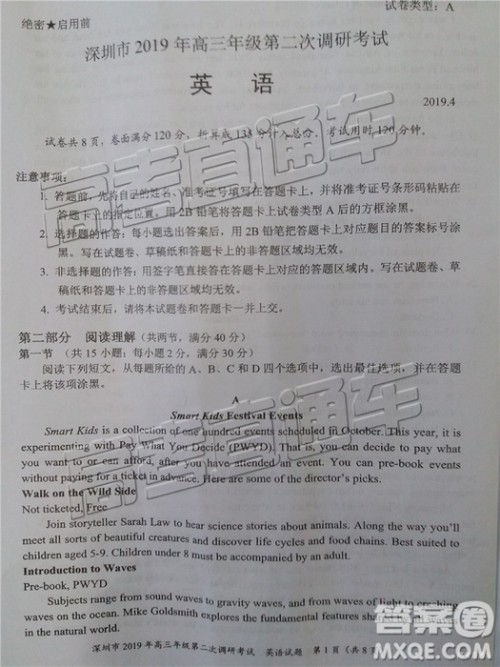 试卷类型：A
绝密★启用前
深圳市 2019 年高三年级第二次调研考试
英 语
2019.4
试卷共 8 页，卷面满分 120 分，折算成 135 分计入总分。考试用时 120 分钟。
注意事项：
1. 答题前，先将自己的姓名、准考证号填写在答题卡上，并将准考证号条形码粘贴在
答题卡上的指定位置。用 2B 铅笔将答题卡上试卷类型 A 后的方框涂黑。
2. 选择题的作答：每小题选出答案后，用 2B 铅笔把答题卡上对应题目的答案标号涂
黑。写在试题卷、草稿纸和答题卡上的非答题区域均无效。
3. 非选择题的作答：用签字笔直接答在答题卡上对应的答题区域内。写在试题卷、草
稿纸和答题卡上的非答题区域均无效。
4. 考试结束后，请将本试题卷和答题卡一并上交。
第二部分 阅读理解（共两节，满分 40 分）
第一节 （共 15 小题；每小题 2 分，满分 30 分）
阅读下列短文，从每题所给的 A、B、C 和 D 四个选项中，选出最佳选项，并在答题
卡上将该项涂黑。
A
Smart Kids Festival Events
Smart Kids is a collection of one hundred events scheduled in October. This year, it is
experimenting with Pay What You Decide (PWYD). That is, you can decide to pay what
you want to or can afford, after you have attended an event. You can pre-book events
without paying for a ticket in advance. Here are some of the director's picks.
Walk on the Wild Side
Not ticketed, Free
Join storyteller Sarah Law to hear science stories about animals. Along the way you'll
meet all sorts of beautiful creatures and discover life cycles and food chains. Best suited to
children aged 5-9. Children under 8 must be accompanied by an adult.
Introduction to Waves
Pre-book, PWYD
Subjects range from sound waves to gravity waves, and from waves of light to crashing
waves on the ocean. Mike Goldsmith explores the fundamental features shared by all waves
in the natural world.
深圳市 2019 年高三年级第二次调研考试 英语试题 第 1 页（共 8
高考直通车
高考直通车
答案圈
MXQE.COM